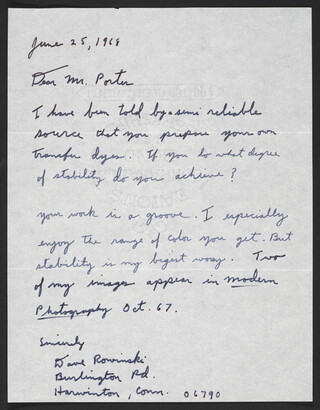 June 25, 1968
Dear Mr. Porter
I have been told by a semi reliable
source that you prepare your own
transfer dyes. If you do what degree
of stability do you achieve?
your work is a groove. I especially
enjoy the range of color you get. But
stability is my bigest worry. Two
of my images appear in modern
Photography Oct. 67.
Sincerly
Dave Rowinski
Burlington Rd.
Harwinton, Conn. 06790